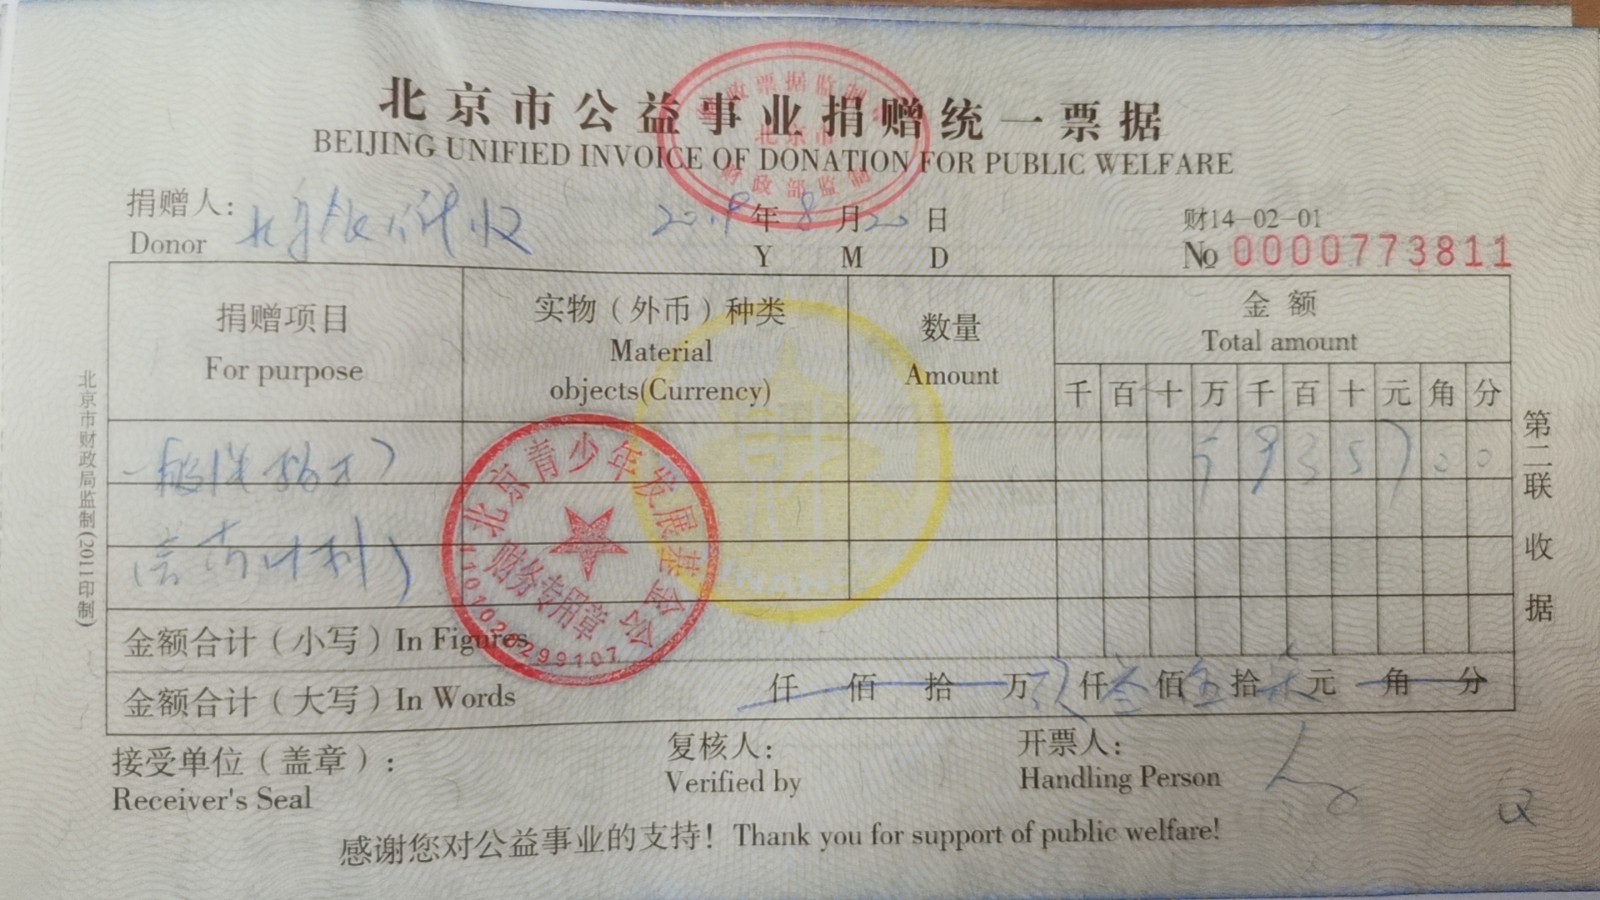 北京市公益事业捐赠统一票据
BEIJING UNIFIED INVOICE OF DONATION FOR PUBLIC WELFARE
财政票据监制
北京市
财政部监制
捐赠人：
Donor
2019年8月20日
Y M D
财14-02-01
№ 0000773811
捐赠项目
For purpose
实物（外币）种类
Material
objects(Currency)
数量
Amount
金额
Total amount
千 百 十 万 千 百 十 元 角 分
9 3 5 7 0 0
北京青少年发展基金会
财务专用章
金额合计（小写）In Figures
金额合计（大写）In Words
仟 佰 拾 万 仟叁佰伍拾柒元 角 分
接受单位（盖章）：
Receiver's Seal
复核人：
Verified by
开票人：
Handling Person
感谢您对公益事业的支持！Thank you for support of public welfare!
北京市财政局监制(2011印制)
第二联 收据